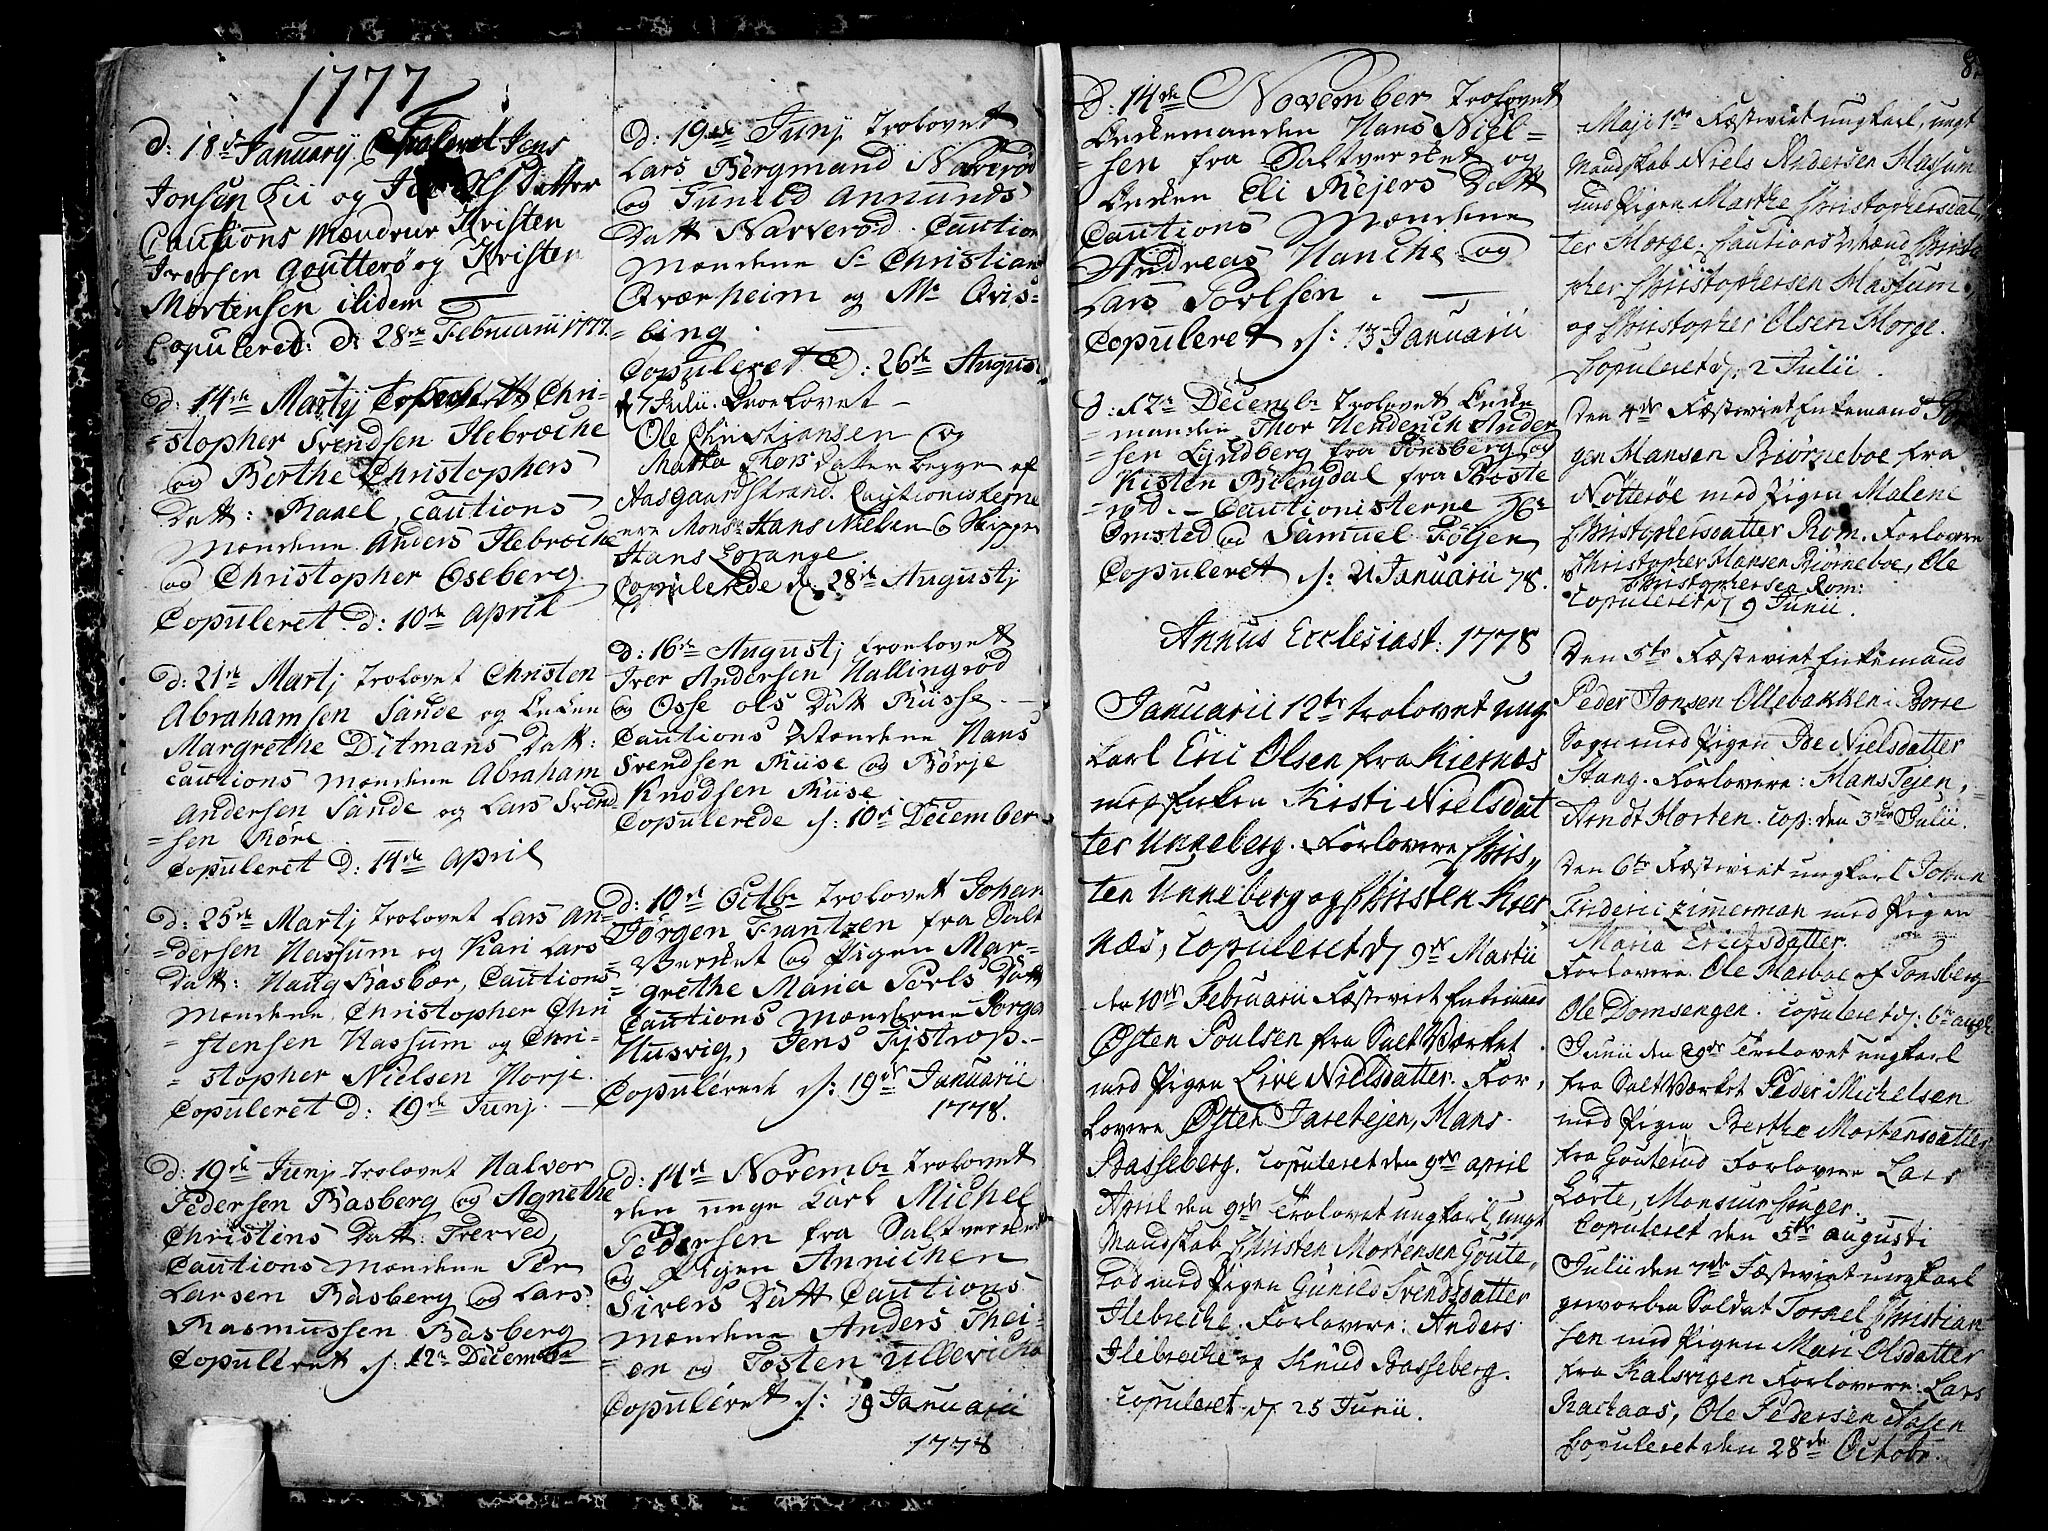 1777
d: 18de January Troloved Jens
Jonsen Lii og Ols Datter
Cautions Mændene Kristen
Iversen Goutterø og Kristen
Mortensen ibidem
Copuleret: d: 28de Februarii 1777.
d: 14de Martj Chri-
=stopher Svendsen Ilebreche
og Berthe Christophers
Datt: Rauel, Cautions
Mændene Anders Ilebreche
og Christopher Oseberg
Copuleret d: 10de April
d: 21de Martj Trolovet Christen
Abrahamsen Sande og Enken
Margrethe Ditmans Datt:
Cautions Mændene Abraham
Andersen Sande og Lars Svend
=sen Røre
Copuleret D: 14de April
d: 25de Martj Trolovet Lars An-
=dersen Hassum og Kari Lars
Datt: Haug Basbær, Cautions
Mændene Christopher Chri
=stensen Hassum og Chri-
=stopher Nielsen Horje.
Copuleret D: 19de Junj.
d: 19de Junj Trolovet Halvor
Pedersen Basberg og Agnethe
Christens Datt: Trerød,
Cautions Mændene Per
Larsen Basberg og Lars
Rasmussen Basberg
Copuleret d: 12te Decembr
d: 19de Junj Trolovet
Lars Bergmand Naverød
og Gunild Annunds
Datt Narverød. Cautions
Mændene Sr Christian
Qværheim og Mr Qvis-
=ling.
Copuleret D: 26de August
d 7 Julii. Troelovet
Ole Christiansen og
Marta Thors datter begge af
Aasgaardstrand. Cautionisterne
ere Mons: Hans Nielsen & Skipper
Hans Lorange
Copulerede d. 28de Augustj
d: 16de Augustj troelovet
Iver Andersen Hallingrød
og Osse Ols Datt Russe.
Cautions Mændene Hans
Svendsen Ruse og Børje
Knudsen Ruse
Copulerede d: 10de December
d: 10de Octbr Trolovet Johan
Jørgen Frantzen fra Salt
Verket og Pigen Mar-
=grethe Maria Perls Datt
Cautions Mændene Jørgen
Husvig, Jens Tjstrop.
Copulerede d: 19de Januarii
1778.
d: 14de Novembr Trolovet
den unge Karl Michel
Pedersen fra Saltverket
og Pigen Annichen
Sivers Datt Cautions
Mændene Anders Thei-
=en og Tosten Ullevich
Copuleret d: 19 Januarii
1778
d: 14de November Trolovet
Enkemanden Hans Niel-
=sen fra Saltverket og
Enken Eli Rejers Datt
Cautions Mændene
Andreas Hanche og
Lars Porlsen.
Copuleret d: 13 Januarii
d: 12te Decembr Trolovet Enke
=manden Thor Henderich Ander
=sen Lyndberg fra Tønsberg og
Kisten Bergdal fra Roste
=rød. Cautionisterne Hr
Omsted og Samuel Følsen
Copuleret d: 21 Januarii 78.
Annus Ecclesiast: 1778
Januarii 12te trolovet ung
karl Eric Olsen fra Kiernæs
med Enken Kirsti Nielsdat
ter Unneberg. Forlovere Chris,,
ten Unneberg og Christen Kier
næs, Copuleret d 9de Martii
den 10de Februarii Fæsteviet Enkemand
Østen Poulsen fra Salt Værket
med Pigen Live Nielsdatter. For,
lovere Østen Jarebejen, Hans
Basseberg. Copuleret den 9de april
April den 9de Trolovet ungkarl, ungt
Mandskab Christen Mortensen Goute,
rød med Pigen Gunild Svendsdatter
Ilebreche. Forlovere: Anders
Ilebreche og Knud Basseberg.
Copuleret d 25 Junii.
8
Maji 1ste Fæsteviet ungkarl, ungt
Mandskab Niels Andersen Hassum
med Pigen Marthe Christophersdat,
ter Horge. Cautions Mænd Christo
pher Christophersen Hassum
og Christopher Olsen Horge.
Copuleret d. 2 Julii.
Den 4de Fæsteviet Enkemand Jør
gen Hansen Biørneboe fra
Nøtterøe med Pigen Malene
Christophersdatter Rom. Forlovere
Christopher Hansen Biørneboe, Ole
Christophersen Rom:
Copuleret d 9 Junii.
Den 5te Fæsteviet Enkemand
Peder Jonsen Ollebakken i Borre
Sogn med Pigen Boe Nielsdatter
Stang. Forlovere: Hans Tejen,
Arndt Horten. Cop: den 3die Julii.
Den 6te Fæsteviet ungkarl Johan
Frideric Zimerman med Pigen
Maria Ericksdatter.
Forlovere Ole Hasboe af Tønsberg
Ole Domsengen. Copuleret d: 6te aug
Junii den 29de Trolovet ungkarl
fra SaltVærket Peder Michelsen
med Pigen Berthe Mortensdatter
fra Gouterud Forlovere Lars
Korte, Monsiur Unger.
Copuleret den 5te augusti
Julii den 7de Fæsteviet ungkarl
geworben Soldat Tornel Christian
sen med Pigen Mari Olsdatter
fra Kalsvigen Forlovere: Lars
Rachaas, Ole Pedersen Aasen
Copuleret den 28de Octobr.